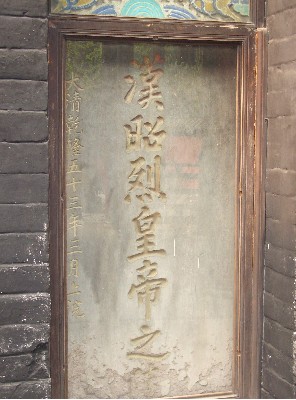 漢昭烈皇帝之
大清乾隆五十三年